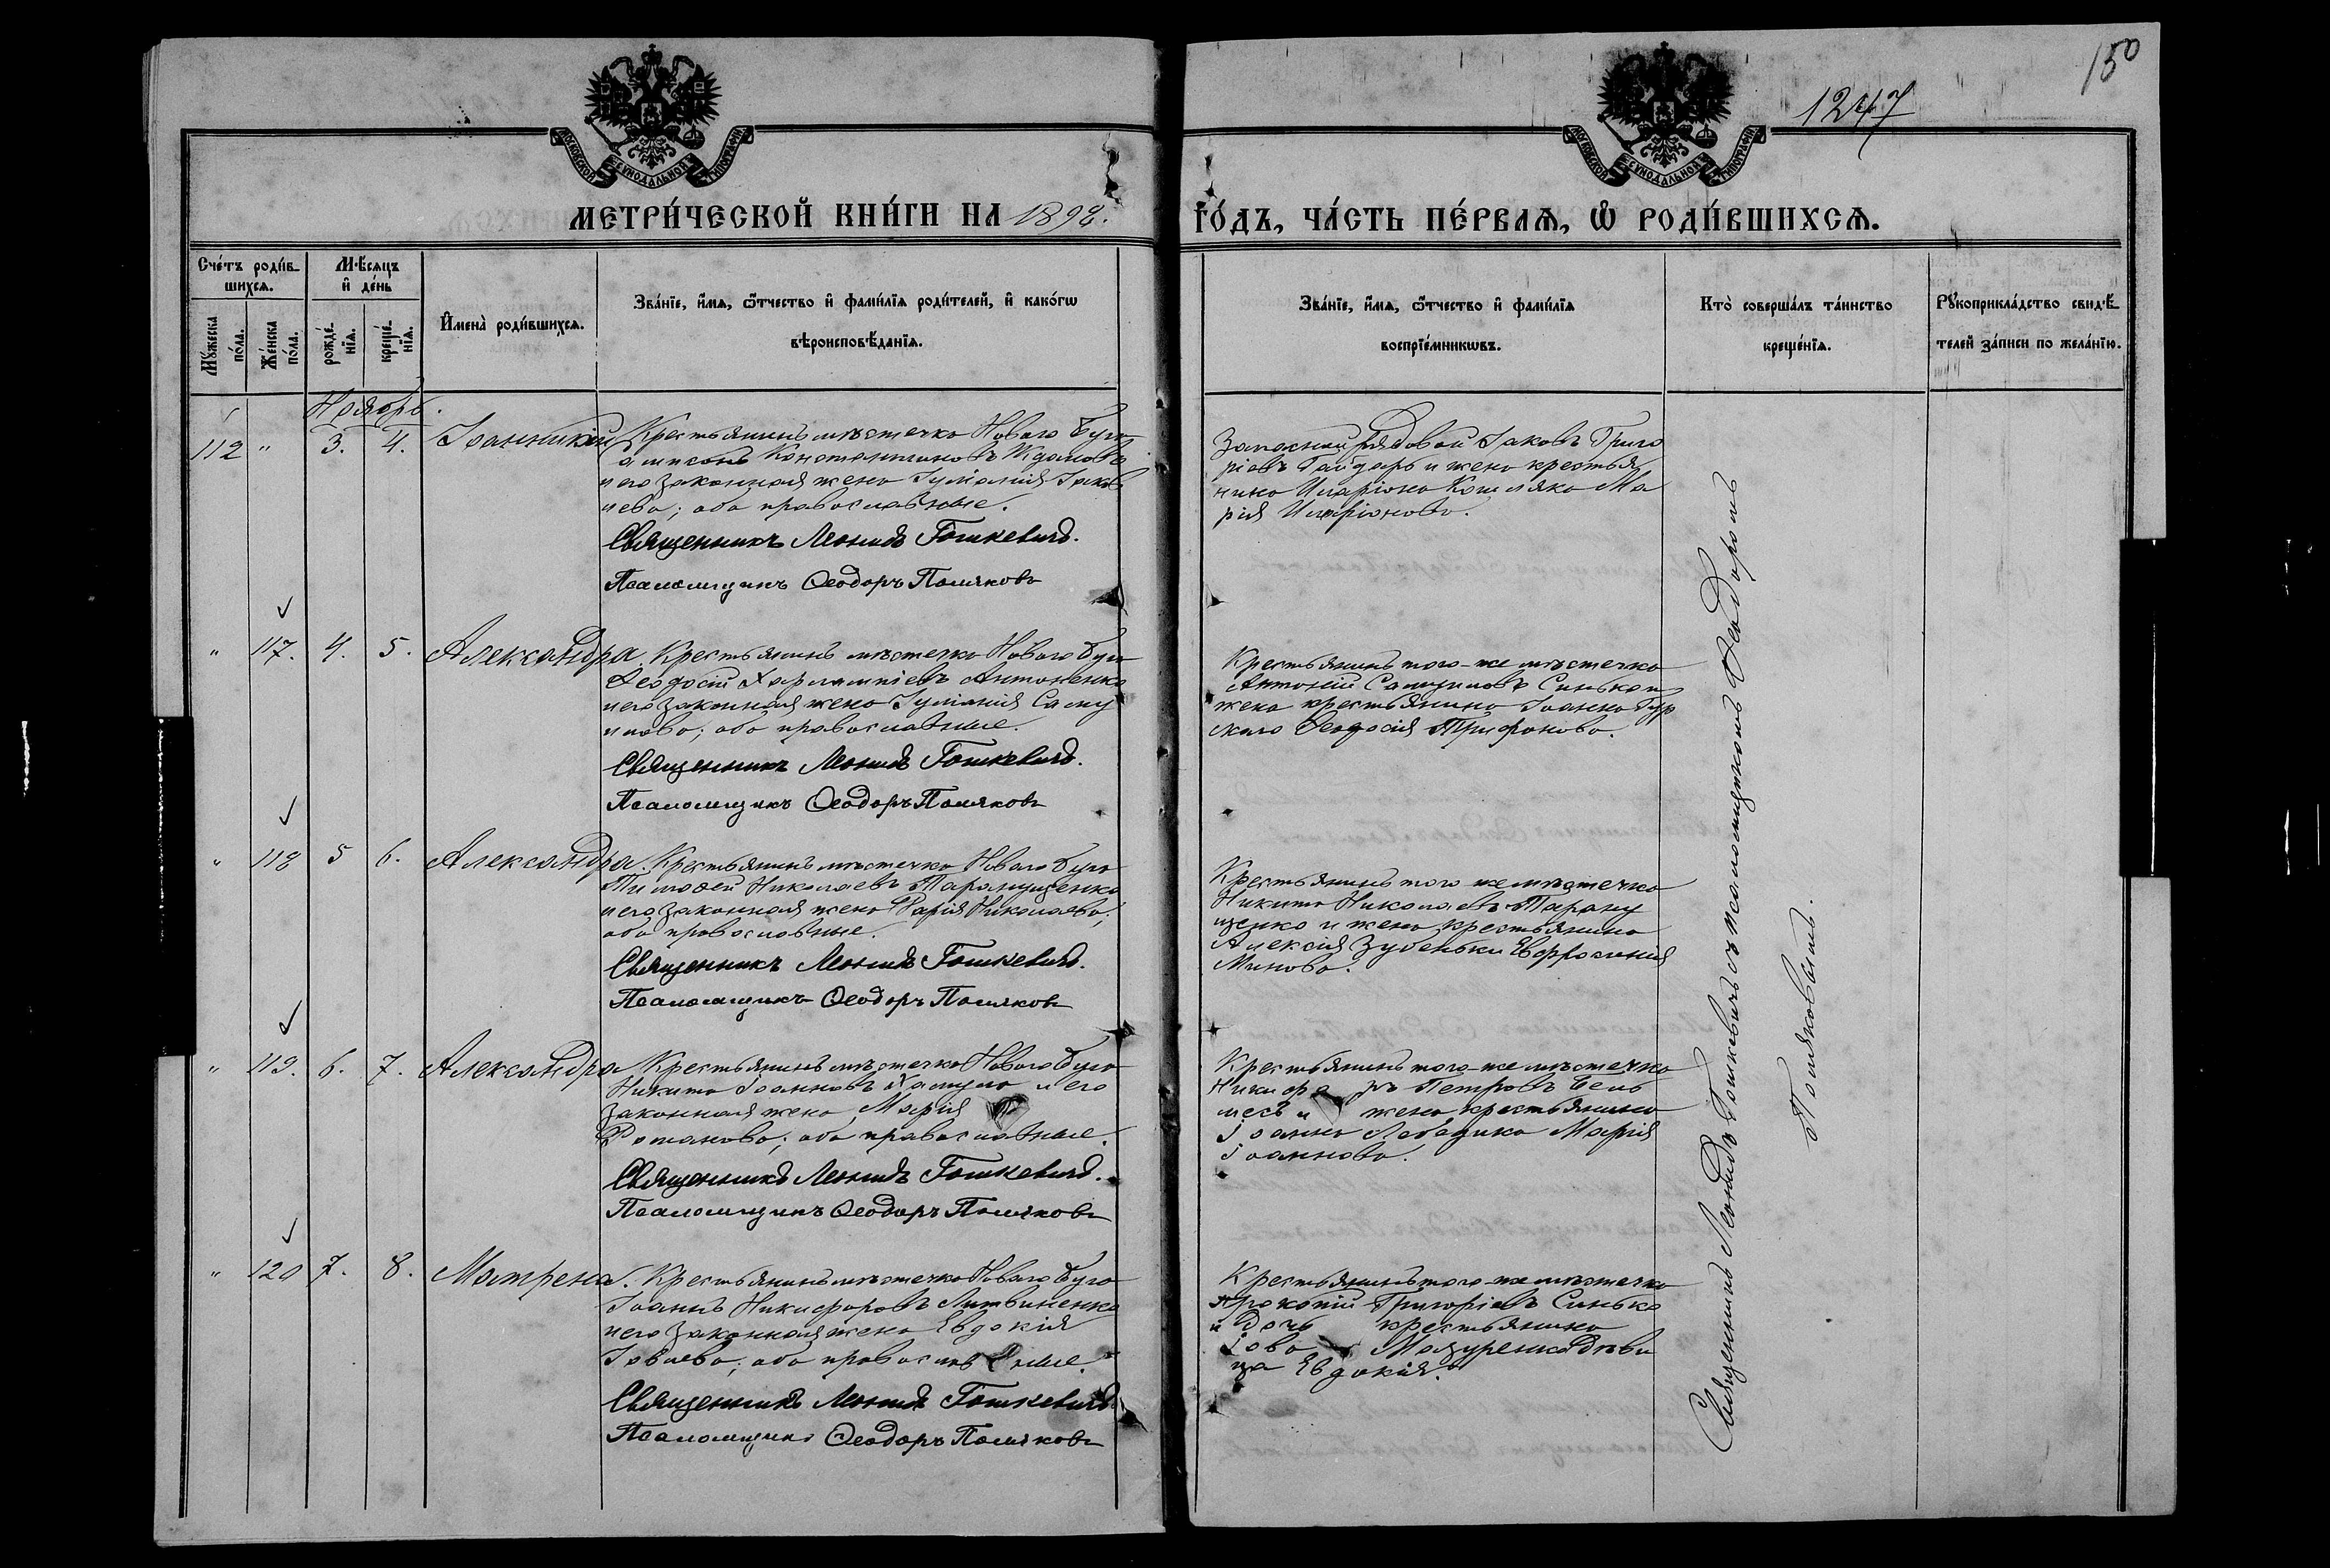 150
1247
МОСКОВСКОЙ СѴНОДАЛЬНОЙ ТИПОГРАФІИ
МОСКОВСКОЙ СѴНОДАЛЬНОЙ ТИПОГРАФІИ
МЕТРИ́ЧЕСКОЙ КНИ́ГИ НА 1892.
ГО́ДЪ, ЧА́СТЬ ПЕ́РВАѦ, Ѽ РОДИ́ВШИХСѦ.
Сче́тъ роди́в-
шихсѧ.
Мꙋ́жеска
по́ла.
Же́нска
по́ла.
Мѣ́сѧцъ
и҆ де́нь
рожде́-
нїѧ.
креще́-
нїѧ.
И҆мена̀ роди́вшихсѧ.
Зва́нїе, и҆́мѧ, ѻ҆́тчество и҆ фами́лїѧ роди́телей, и҆ како́гѡ
вѣроисповѣ́данїѧ.
Зва́нїе, и҆́мѧ, ѻ҆́тчество и҆ фами́лїѧ
воспрїе́мникѡвъ.
Кто̀ соверша́лъ та́инство
креще́нїѧ.
Рꙋкоприкла́дство свидѣ́-
телей за́писи по жела́нїю.
Ноябрь.
112 " 3. 4. Іоанникій
Крестьянинъ мѣстечка Новаго Буга
Константиновъ
и его законная жена Іуліанія Іаков
лева; оба православные.
Священникъ Леонидъ Гошкевичъ.
Псаломщикъ Ѳеодоръ Поляковъ
Запасной рядовой Іаковъ Григо
ріевъ Гайдарь и жена крестья
нина Иларіона Кошляка Ма
рія Иларіонова.
" 117. 4. 5. Александра.
Крестьянинъ мѣстечка Новаго Буга
Ѳеодосій Харлампіевъ Антоненко
и его законная жена Іуліанія Саму
илова; оба православные.
Священникъ Леонидъ Гошкевичъ.
Псаломщикъ Ѳеодоръ Поляковъ
Крестьянинъ того-же мѣстечка
Антоній Самуиловъ Синько и
жена крестьянина Іоанна Гур
скаго Ѳеодосія Трифонова.
" 118 5 6. Александра.
Крестьянинъ мѣстечка Новаго Буга
Тимоѳей Николаевъ Таранущенко
и его законная жена Марія Николаева;
оба православные.
Священникъ Леонидъ Гошкевичъ.
Псаломщикъ Ѳеодоръ Поляковъ
Крестьянинъ того же мѣстечка
Никита Николаевъ Тарану
щенко и жена крестьянина
Алексія Зубенька Евфросинія
Минова.
" 119. 6. 7. Александра
Крестьянинъ мѣстечка Новаго Буга
Никита Іоанновъ и его
законная жена Марія
Романова; оба православные.
Священникъ Леонидъ Гошкевичъ.
Псаломщикъ Ѳеодоръ Поляковъ
Крестьянинъ того-же мѣстечка
Никифоръ Петровъ Бель
месъ и жена крестьянина
Іоанна Лебедика Марія
Іоаннова.
" 120 7. 8. Матрена.
Крестьянинъ мѣстечка Новаго Буга
Іоаннъ Никифоровъ Литвиненко
и его законная жена Евдокія
Іовлева; оба православные.
Священникъ Леонидъ Гошкевичъ.
Псаломщикъ Ѳеодоръ Поляковъ
Крестьянинъ того-же мѣстечка
Прокопій Григоріевъ Синько
и дочь крестьянина
Іова Мазуренка дѣви
ца Евдокія.
Священникъ Леонидъ Гошкевичъ съ псаломщикомъ Ѳеодоромъ
Поляковымъ.